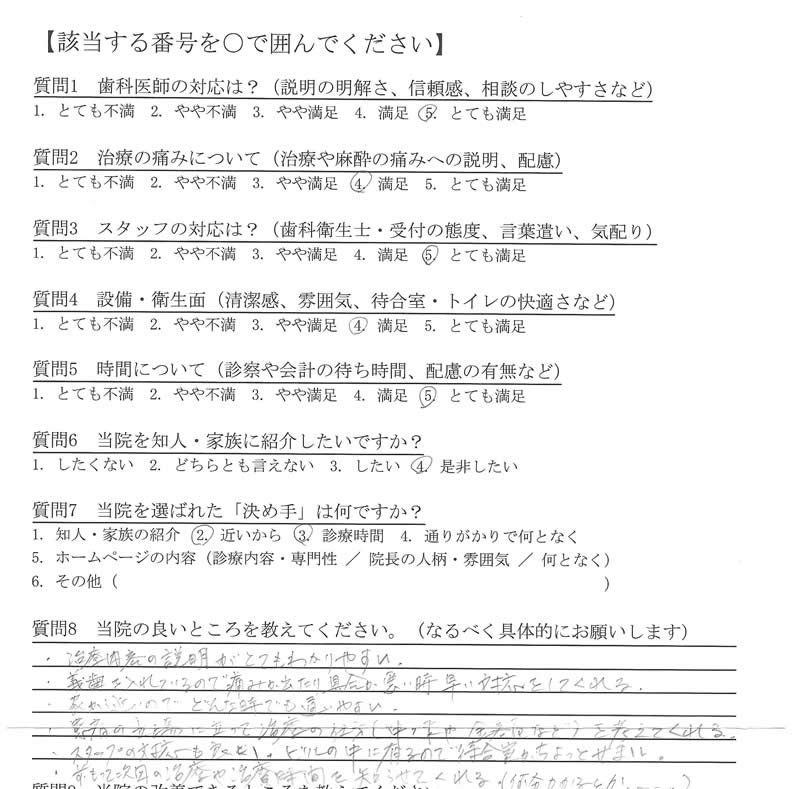 【該当する番号を○で囲んでください】
質問1 歯科医師の対応は？（説明の明解さ、信頼感、相談のしやすさなど）
1. とても不満 2. やや不満 3. やや満足 4. 満足 5. とても満足
質問2 治療の痛みについて（治療や麻酔の痛みへの説明、配慮）
1. とても不満 2. やや不満 3. やや満足 4. 満足 5. とても満足
質問3 スタッフの対応は？（歯科衛生士・受付の態度、言葉遣い、気配り）
1. とても不満 2. やや不満 3. やや満足 4. 満足 5. とても満足
質問4 設備・衛生面（清潔感、雰囲気、待合室・トイレの快適さなど）
1. とても不満 2. やや不満 3. やや満足 4. 満足 5. とても満足
質問5 時間について（診察や会計の待ち時間、配慮の有無など）
1. とても不満 2. やや不満 3. やや満足 4. 満足 5. とても満足
質問6 当院を知人・家族に紹介したいですか？
1. したくない 2. どちらとも言えない 3. したい 4. 是非したい
質問7 当院を選ばれた「決め手」は何ですか？
1. 知人・家族の紹介 2. 近いから 3. 診療時間 4. 通りがかりで何となく
5. ホームページの内容（診療内容・専門性 ／ 院長の人柄・雰囲気 ／ 何となく）
6. その他（ ）
質問8 当院の良いところを教えてください。（なるべく具体的にお願いします）
・治療内容の説明がとてもわかりやすい。
・義歯を入れているので痛みが出たり具合が悪い時早い対応をしてくれる。
・家が近いのでどんな時でも通いやすい。
・患者の立場に立って治療の仕方（や金額面など）を考えてくれる。
・スタッフの対応も良い。ビルの中に有るので待合室がちょっとせまい。
・前もって次回の治療や治療時間を知らせてくれる
質問9 当院の改善できるところを教えてください